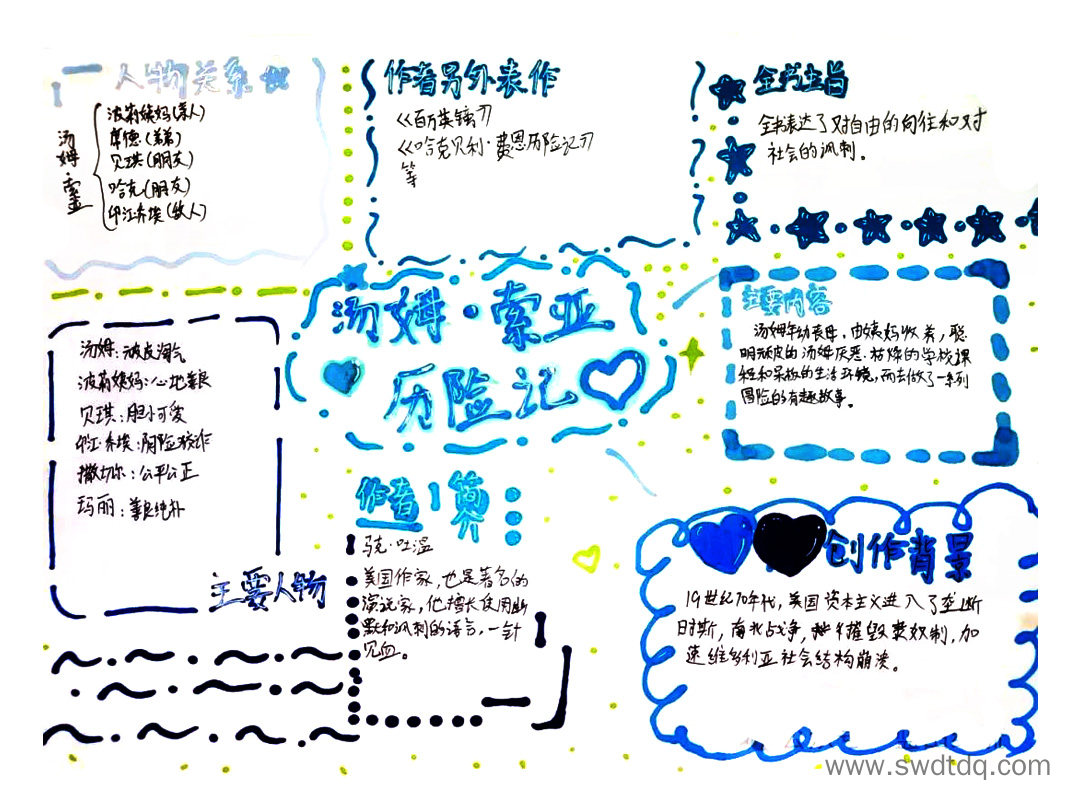 人物关系
汤姆·索亚
波莉姨妈(亲人)
席德(表弟)
贝琪(朋友)
哈克(朋友)
印江·乔埃(敌人)
作者另外表作
《百万英镑》
《哈克贝利·费恩历险记》
等
全书主旨
全书表达了对自由的向往和对
社会的讽刺。
汤姆·索亚
历险记
主要内容
汤姆年幼丧母,由姨妈收养,聪
明顽皮的汤姆厌恶枯燥的学校课
程和呆板的生活环境,而去做了一系列
冒险的有趣故事。
汤姆:顽皮淘气
波莉姨妈:心地善良
贝琪:胆小可爱
印江·乔埃:阴险狡诈
撒切尔:公平公正
玛丽:善良纯朴
主要人物
作者简介
马克·吐温
美国作家,也是著名的
演说家,他擅长使用幽
默和讽刺的语言,一针
见血。
创作背景
19世纪70年代,美国资本主义进入了垄断
时期,南北战争,摧毁农奴制,加
速维多利亚社会结构崩溃。
www.swdtdq.com